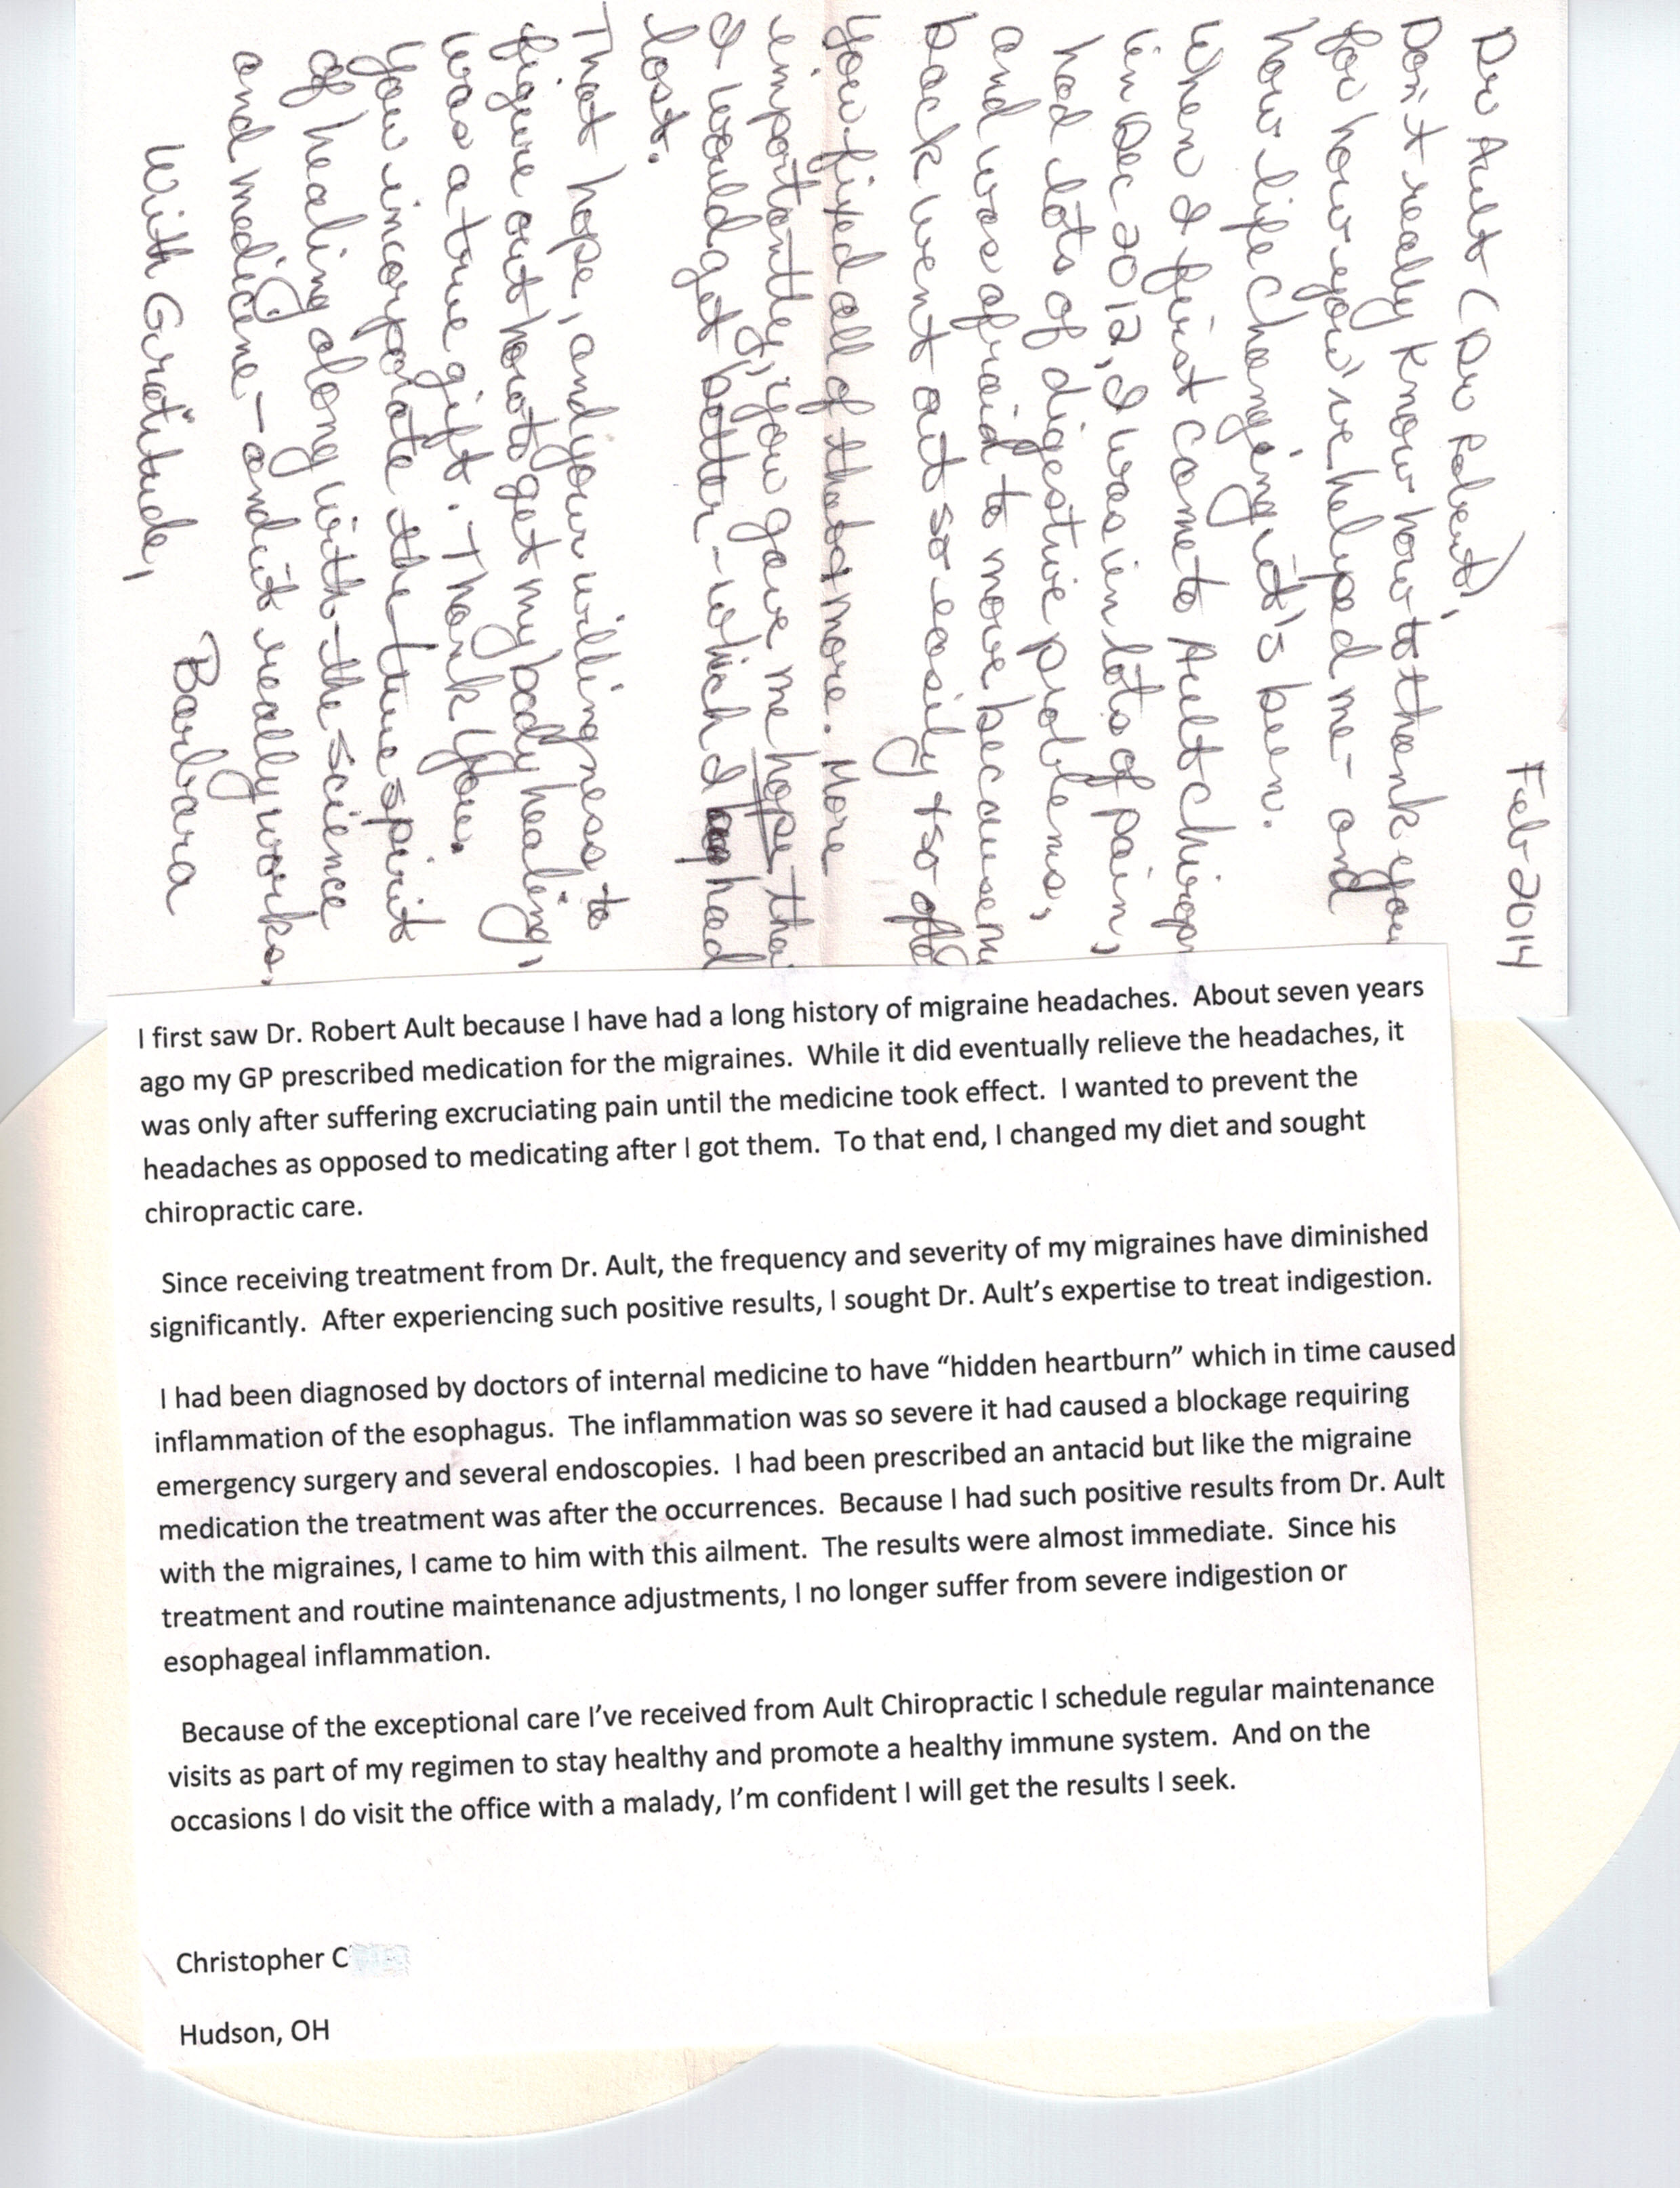 Feb 2014
Dr Ault (Dr Robert),
Don't really know how to thank you
for how you've helped me - and
how life changing it's been.
When I first came to Ault Chirop
in Dec 2012, I was in lots of pain,
had lots of digestive problems,
and was afraid to move because m
back went out so easily + so often
you fixed all of that & more. More
importantly, you gave me hope tha
I would get better - which I had
lost.
That hope, and your willingness to
figure out how to get my body healing,
was a true gift. Thank you.
You incorporate the true spirit
of healing along with the science
and medicine - and it really works.
With Gratitude,
Barbara
I first saw Dr. Robert Ault because I have had a long history of migraine headaches. About seven years
ago my GP prescribed medication for the migraines. While it did eventually relieve the headaches, it
was only after suffering excruciating pain until the medicine took effect. I wanted to prevent the
headaches as opposed to medicating after I got them. To that end, I changed my diet and sought
chiropractic care.
Since receiving treatment from Dr. Ault, the frequency and severity of my migraines have diminished
significantly. After experiencing such positive results, I sought Dr. Ault's expertise to treat indigestion.
I had been diagnosed by doctors of internal medicine to have “hidden heartburn” which in time caused
inflammation of the esophagus. The inflammation was so severe it had caused a blockage requiring
emergency surgery and several endoscopies. I had been prescribed an antacid but like the migraine
medication the treatment was after the occurrences. Because I had such positive results from Dr. Ault
with the migraines, I came to him with this ailment. The results were almost immediate. Since his
treatment and routine maintenance adjustments, I no longer suffer from severe indigestion or
esophageal inflammation.
Because of the exceptional care I've received from Ault Chiropractic I schedule regular maintenance
visits as part of my regimen to stay healthy and promote a healthy immune system. And on the
occasions I do visit the office with a malady, I'm confident I will get the results I seek.
Christopher C
Hudson, OH